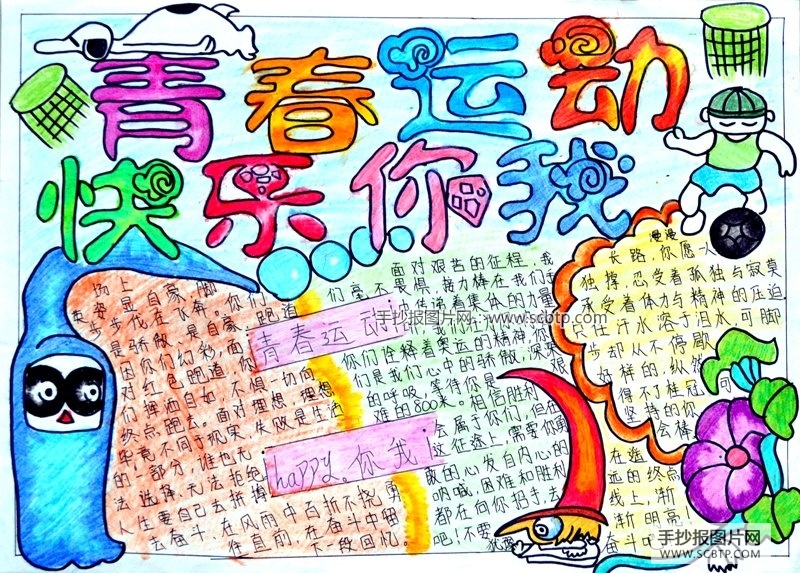 青春运动
快乐你我
场上
英姿显自豪,脚
步步伐在飞奔。你们
是骄傲,是自豪。跑道
因你们幻彩,面
对红色跑道,你
们挥洒自如,不惧一切向
终点跑去。面对理想,理想
毕竟不同于现实,失败是生活
的一部分,谁也无
法选择,无法拒绝
人生要自己去拼搏
去奋斗,在风雨中百折不挠勇
往直前,在奋斗中留
下一段回忆。
青春运动
happy。你我
面对艰苦的征程,我
们毫不畏惧,接力棒在我们手
中传说着集体的力量
你们诠释着奥运的精神,你
们是我们心中的骄傲,深深
的呼吸,等待你是艰
难的800米。相信胜利
会属于你们,但在
这征途上,需要你勇
敢的心发自内心的
呐喊,困难和胜利
都在向你招手,去
吧!不要犹豫
漫漫
长路,你愿一人
独撑,忍受着孤独与寂莫
承受着体力与精神的压迫
只任汗水溶于泪水,可脚
步却从不停歇
好样的,纵然
得不了桂冠,同
坚持的你
会棒
在遥
远的终点
线上,渐
渐明亮!
奋斗
手抄报图片网 www.scbtp.com
手抄报图片网
WWW.SCBTP.COM